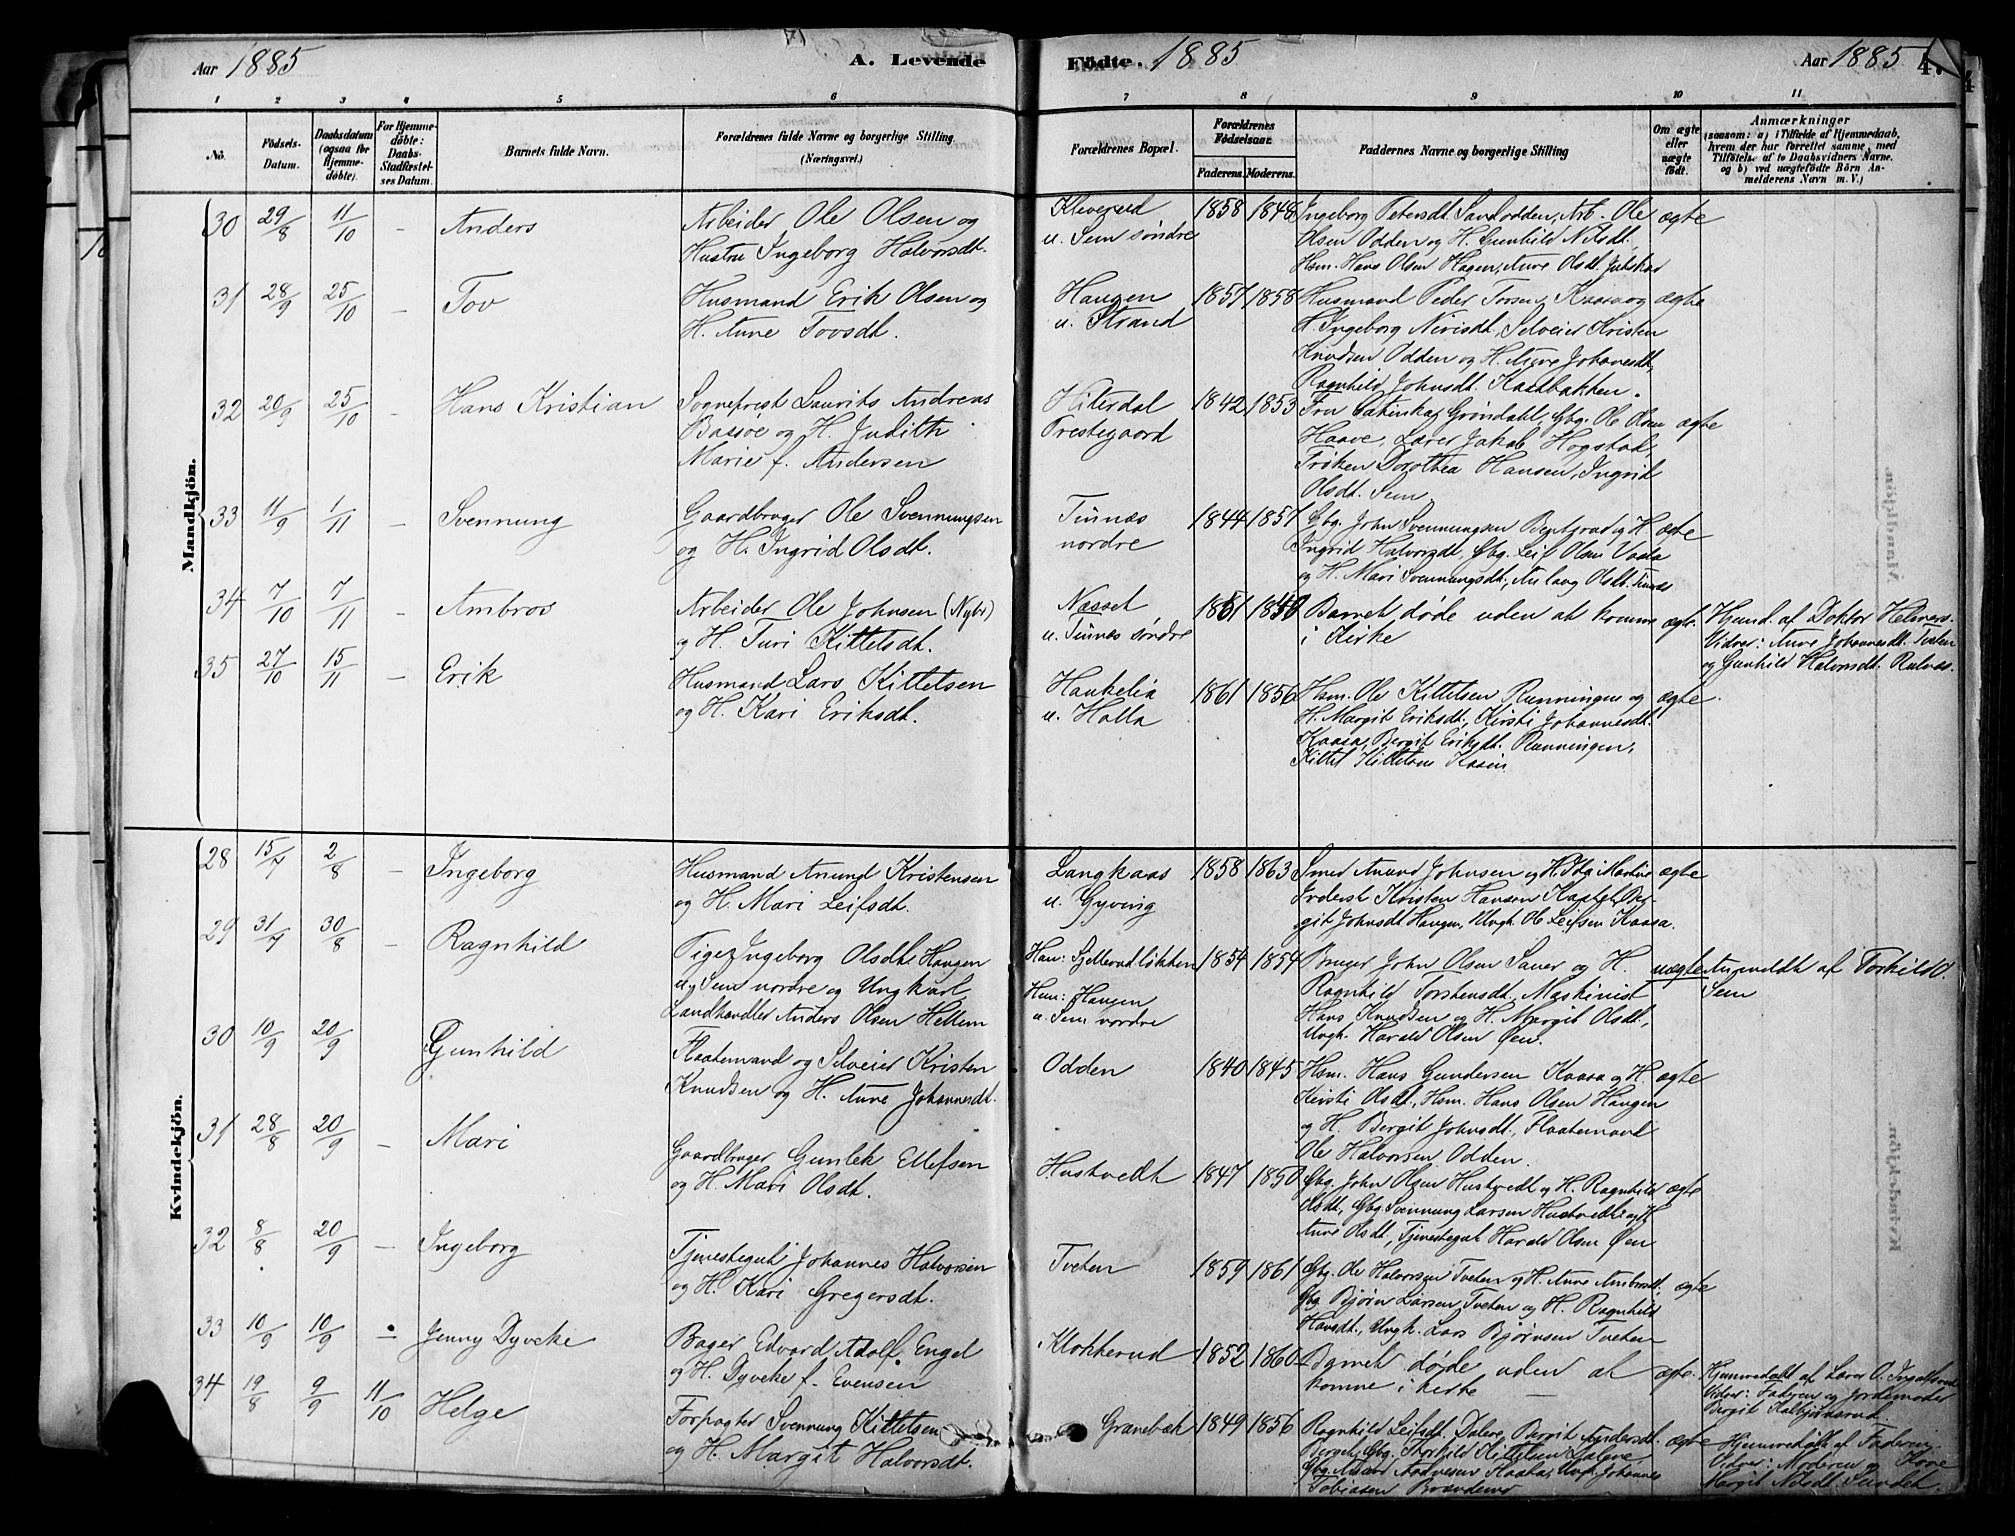 Aar 1885
A. Levende
Födte. 1885
Aar 1885
4.
1 2 3 4 5 6 7 8 9 10 11
No.
Födsels-Datum.
Daabsdatum (ogsaa for Hjemme-döbte).
For Hjemme-döbte: Daabs-Stadfæstel-ses Datum.
Barnets fulde Navn.
Forældrenes fulde Navne og borgerlige Stilling.
(Næringsvei.)
Forældrenes Bopæl.
Forældrenes Födselsaar.
Faderens. Moderens.
Faddernes Navne og borgerlige Stilling
Om ægte eller uægte födt.
Anmærkninger
(saasom: a) i Tilfælde af Hjemmedaab,
hvem der har forrettet samme, med
Tilföielse af to Daabsvidners Navne.
og b) ved uægtefödte Börn An-
melderens Navn m. V.)
Mandkjön.
30 29/8 11/10 - Anders
Arbeider Ole Olsen og
Hustru Ingeborg Halvorsdt.
Klevereid
u. Sem søndre
1858 1848
Ingeborg Petersdt. Sandodden, Arb. Ole
Olsen Odden og H. Gunhild Nilsdt.
Hsm. Hans Olsen Hagen, Anne Olsdt.
ægte
31 28/9 25/10 - Tov
Husmand Erik Olsen og
H. Anne Tovsdt.
Haugen
u. Strand
1857 1858
Husmand Peder Torsen Kaasa og
H. Ingeborg Selveier Kristen
Knudsen Odden og H. Anne Johannesdt,
Ragnhild Johnsdt. Kaasbakken.
ægte
32 20/9 25/10 - Hans Kristian
Sogneprest Laurits Andreas
Bassøe og H. Judith
Marie f. Andersen
Hiterdal
Prestegaard
1842 1853
Fru Cathinka Grøndahl, Gbg. Ole Olsen
Haave, Lærer Jakob Hogstad,
Frøken Dorothea Hansen, Ingrid
Olsdt. Sem
ægte
33 11/9 1/11 - Svennung
Gaardbruger Ole Svennungsen
og H. Ingrid Olsdt.
Tinnæs
nordre
1844 1857
Gbg. John Svennungsen og H.
Ingrid Halvorsdt, Gbg. Leif Olsen
og H. Mari Svennungsdt., Aslaug Olsdt. Tinnæs
ægte
34 7/10 7/11 - Ambros
Arbeider Ole Johnsen (Nybø)
og H. Turi Kittelsdt.
Næsset
u. Tinnes søndre
1851 1850
Barnet døde uden at komme
i Kirke
ægte.
Hjemd. af Doktor
Vidner: Anne Johannesdt. Tveten
og Gunhild Halvorsdt.
35 27/10 15/11 - Erik
Husmand Lars Kittelsen
og H. Kari Eriksdt.
Haukelia
u. Holla
1861 1856
Hsm. Ole Kittelsen Rønningen og
H. Margit Eriksdt., Kirsti Johannesdt.
Kaasa, Bergit Eriksdt. Rønningen,
Kittel Kittelsen
ægte.
Kvindekjön.
28 15/7 2/8 Ingeborg
Husmand Anund Kristensen
og H. Mari Leifsdt.
Langkaas
u. Gyving
1858 1863
Smed Anund Johnsen og H. Ida
Kristen Hansen
Johnsdt Haugen, Ungk. Ole Leifsen Kaasa.
ægte
29 31/7 30/8 - Ragnhild
Pige Ingeborg Olsdt. Haugen
u. Sem nordre og Ungkarl
Landhandler Anders Olsen Hellem
Han: Sjellerudløkken
Hun: Haugen
u. Sem nordre
1854 1854
Bruger John Olsen Sauer og H.
Ragnhild Torstensdt., Maskinist
Hans Knudsen og H. Margit Olsdt,
Ungk. Harald Olsen Øen.
uægte
Anmeldt af Torkild O.
Sem
30 10/9 20/9 Gunhild
Flaatemand og Selveier Kristen
Knudsen og H. Anne Johannesdt.
Odden
1840 1845
Hsm. Hans Gundersen Kaasa og H.
Kirsti Olsdt., Hsm. Hans Olsen Haugen
og H. Bergit Johnsdt., Flaatemand
Ole Halvorsen Odden.
ægte
31 28/8 20/9 - Mari
Gaardbruger Gunlek Ellefsen
og H. Mari Olsdt.
Hustvedt
1847 1850
Gbg. John Olsen Hustvedt og H. Ragnhild
Olsdt, Gbg Svennung Larsen Hustvedt og H.
Anne Olsdt., Tjenestegut Harald Olsen Øen
ægte
32 8/8 20/9 - Ingeborg
Tjenestegut Johannes Halvorsen
og H. Kari Gregersdt.
Tveten
1859 1861
Gbg. Ole Halvorsen Tveten og H. Anne Ambrosdt.
Gbg. Bjørn Larsen Tveten og H. Ragnhild
Hansdt., Ungk. Lars Bjørnsen Tveten
ægte
33 10/9 10/9 - Jenny Dyveke
Bager Edvard Adolf Engel
og H. Dyveke f. Evensen
Klokkerud
1852 1860
Barnet døde uden at
komme i kirke
ægte.
Hjemmedøbt af Lærer O.
Vidner: Faderen og Jordemoder
Bergit
34 19/8 9/9 11/10 Helge
Forpagter Svennung Kittelsen
og H. Margit Halvorsdt.
Granebæk
1849 1856
Ragnhild Leifsdt. Dalene, Bergit Andersdt.
Gbg. Torkild Kittelsen
Gbg. Anund Flaata, Ungk. Johannes
Tobiassen
ægte
Hjemmedøbt af Faderen,
Vidner: Moderen og Kone
Margit Nilsdt. Sundet.